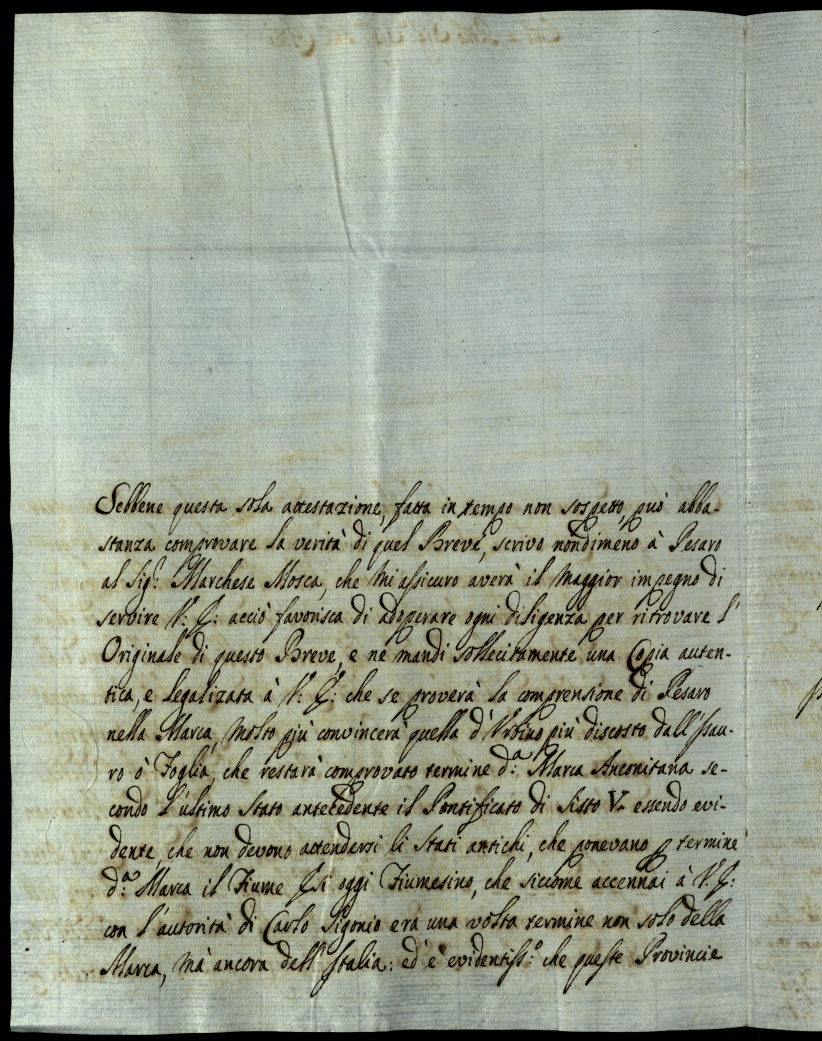 Sebbene questa sola attestazione, fatta in tempo non sospetto, può abba-
stanza comprovare la verità di quel Breve, scrivo nondimeno à Pesaro
al Sig.r Marchese Mosca, che mi assicuro averà il maggior impegno di
servire V: S: acciò favorisca di adoperare ogni diligenza per ritrovare l'
Originale di questo Breve, e ne mandi sollecitamente una Copia auten-
tica, e legalizata à V: S: che se proverà la comprensione di Pesaro
nella Marca, molto più convincerà quella d'Urbino più discosto dall'Isau-
ro ò Foglia, che restarà comprovato termine d.a Marca Anconitana se-
condo l'ultimo Stato antecedente il Pontificato di Sisto V. essendo evi-
dente, che non devono attendersi li Stati antichi, che ponevano p termine
d.a Marca il Fiume Esi oggi Fiumesino, che siccome accennai à V: S:
con l'autorità di Carlo Sigonio era una volta termine non solo della
Marca, mà ancora dell'Italia: ed è evidentiss.o che queste Provincie